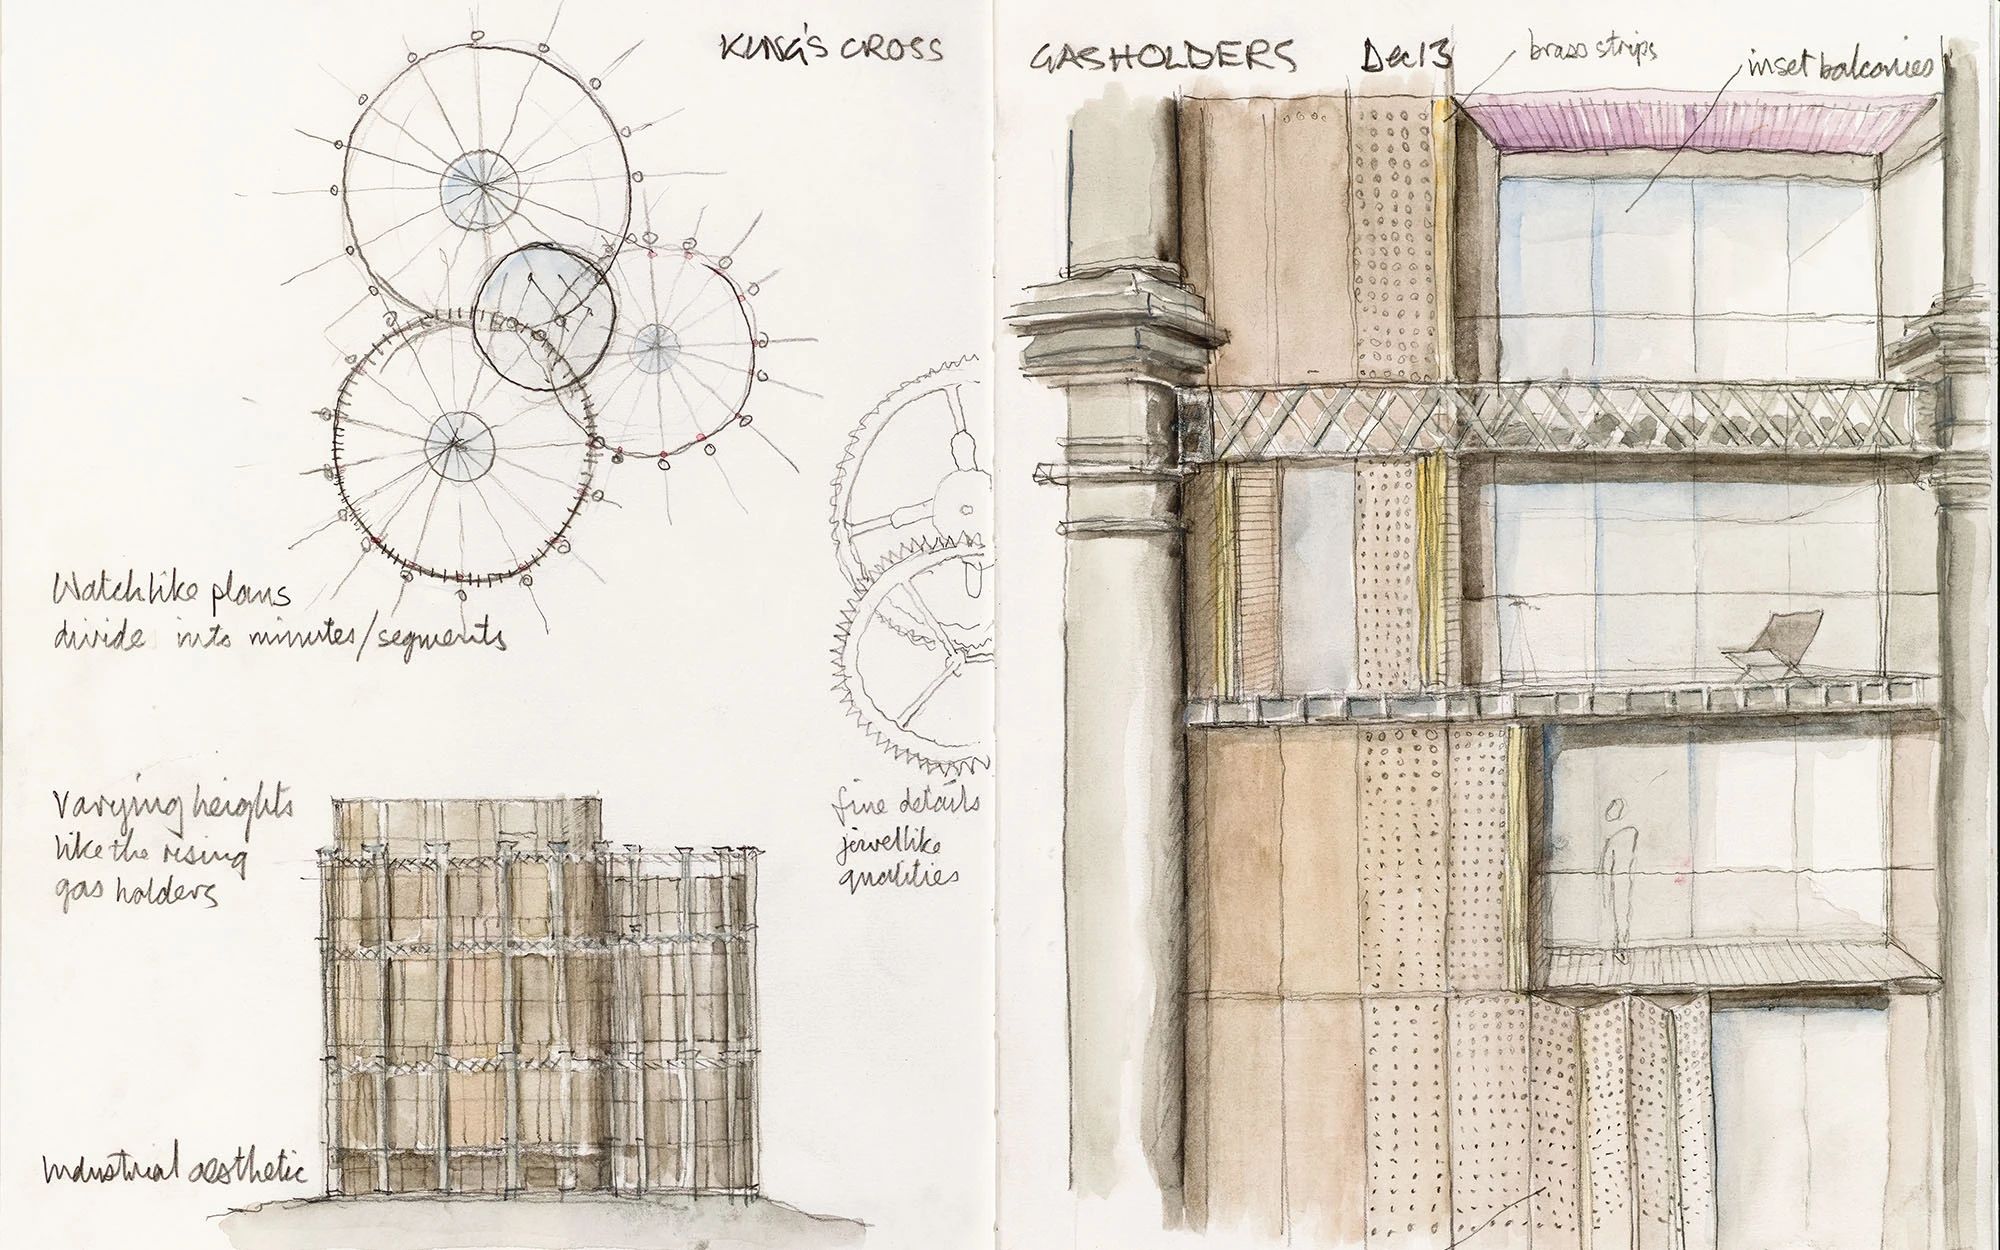 KING'S CROSS GASHOLDERS Dec 13
brass strips
inset balconies
Watchlike plans
divide into minutes/segments
Varying heights
like the rising
gas holders
fine details
jewellike
qualities
Industrial aesthetic